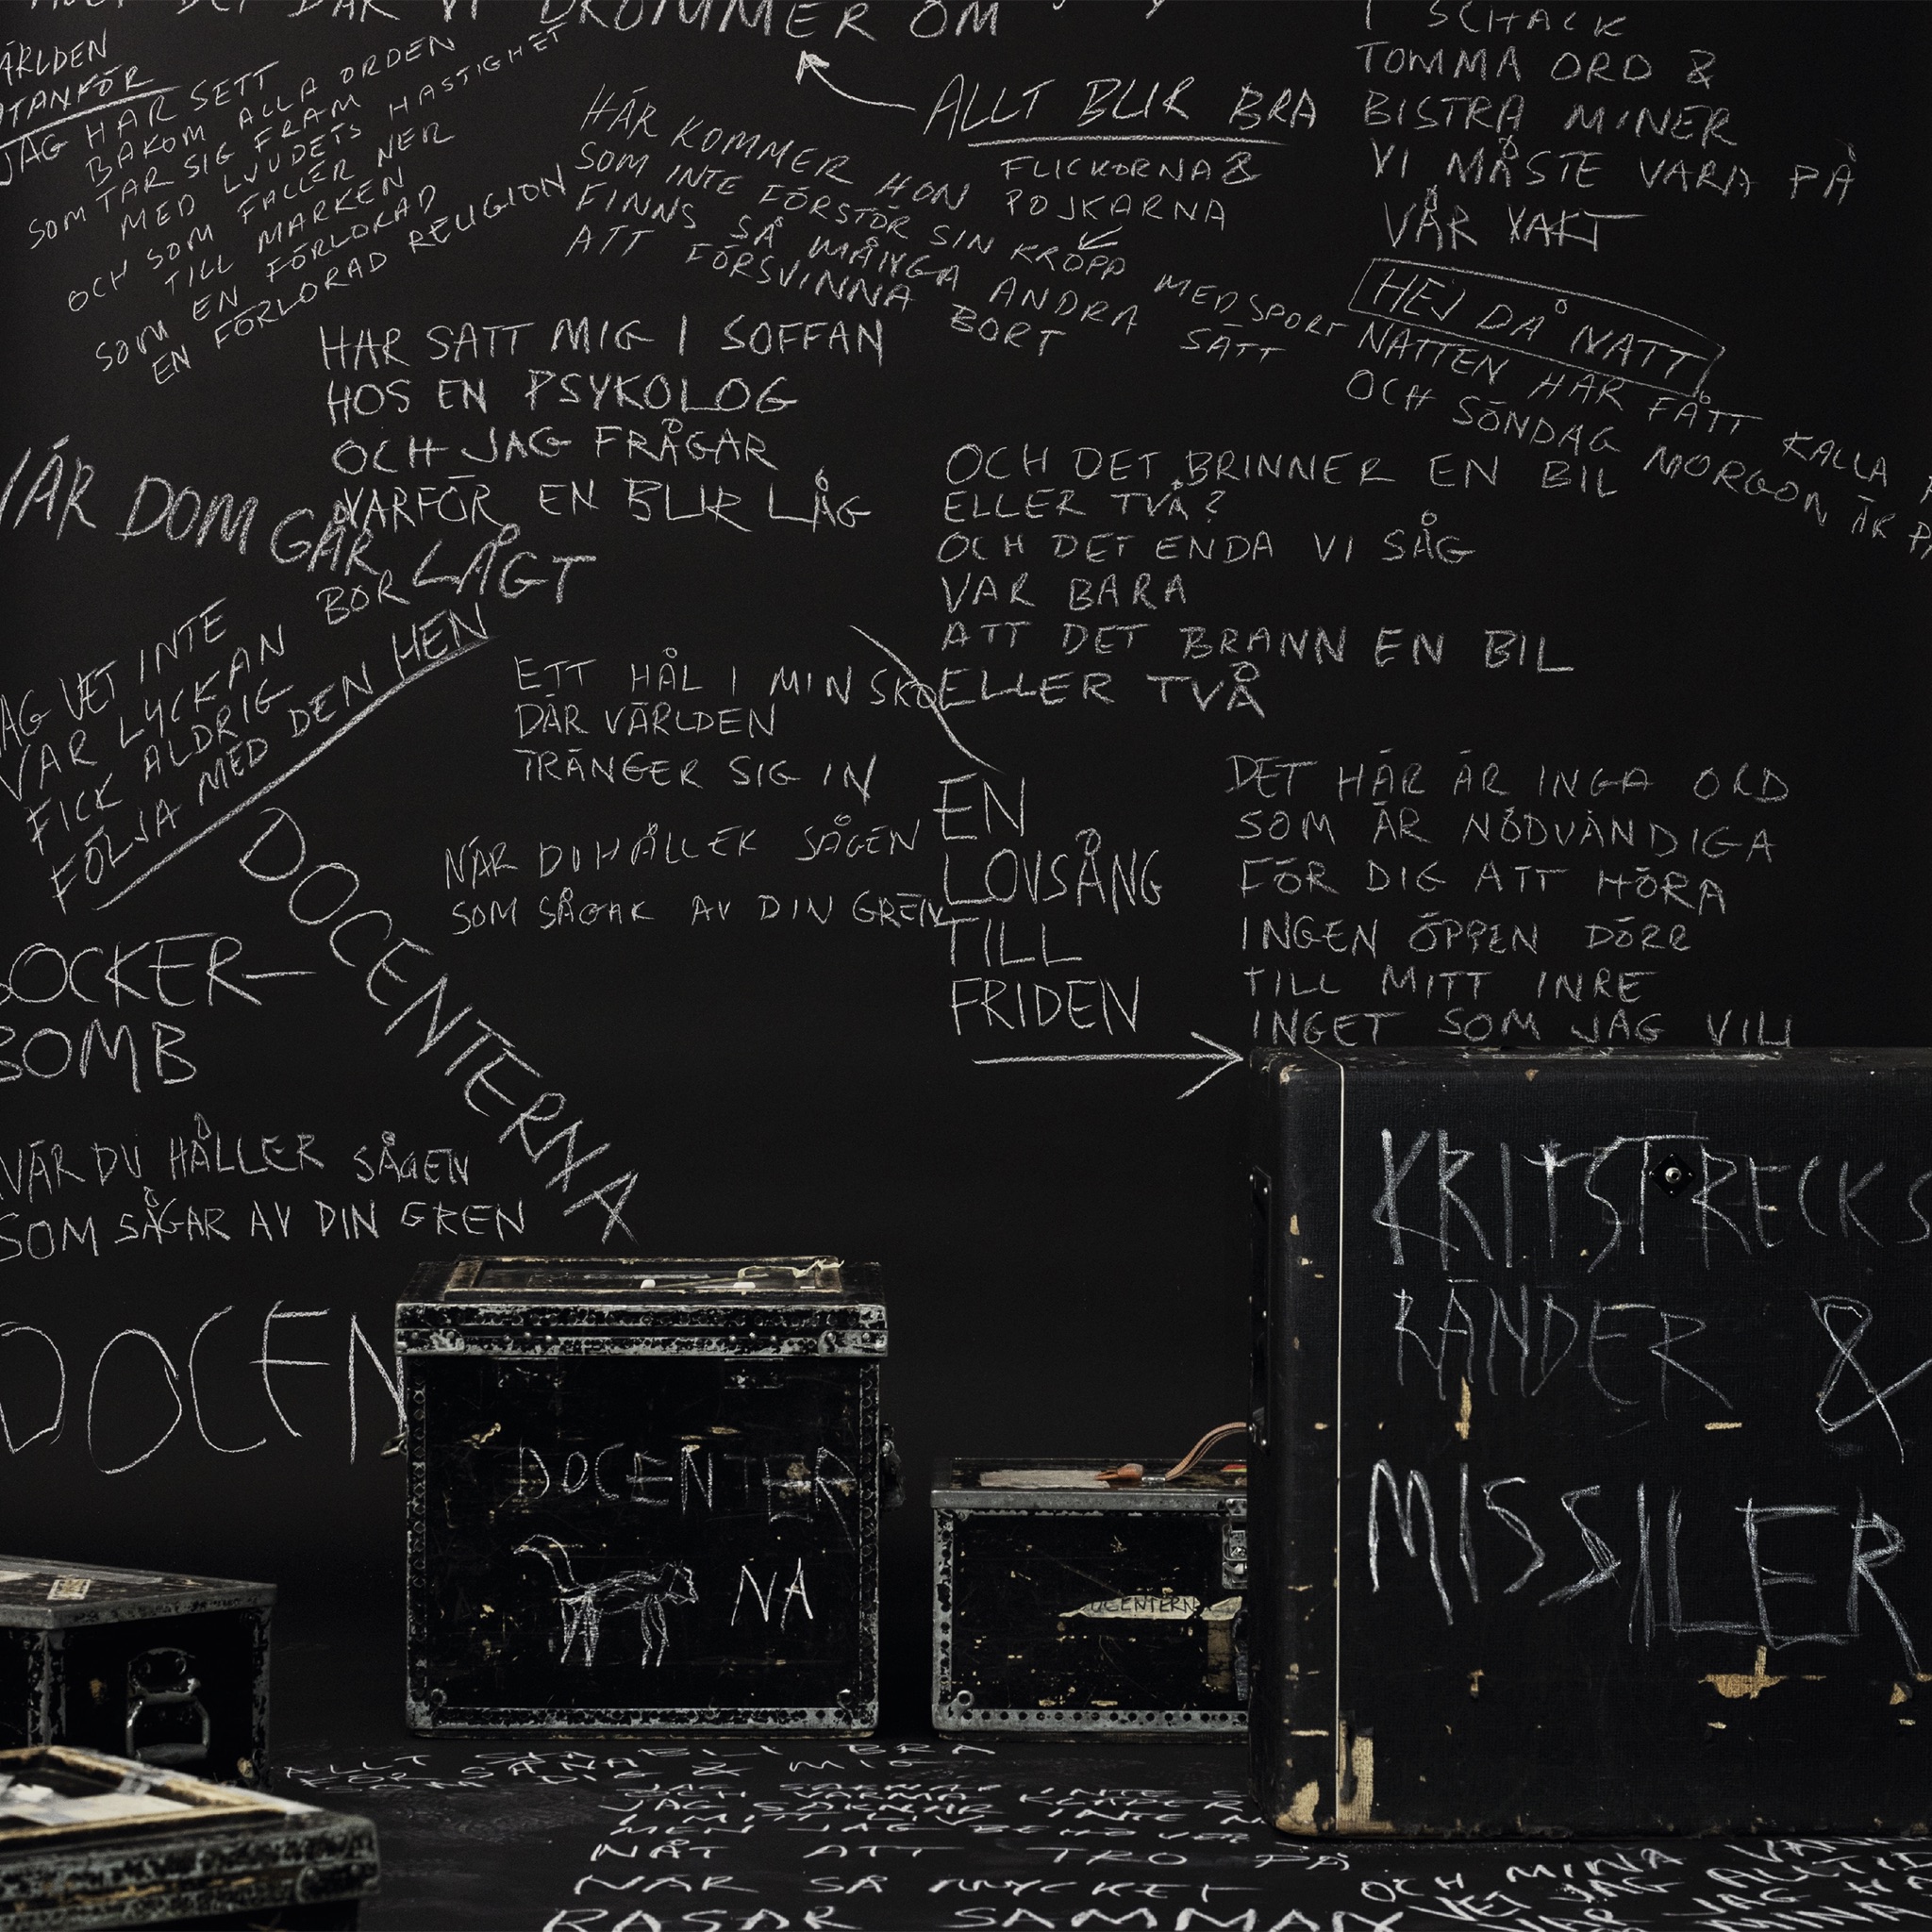 DRÖMMER OM
JAG HAR SETT
BAKOM ALLA ORDEN
SOM TAR SIG FRAM
MED LJUDETS HASTIGHET
OCH SOM FALLER NER
TILL MARKEN
SOM EN FÖRLORAD
EN FÖRLORAD RELIGION
HÄR KOMMER HON
SOM INTE FÖRSTÖR SIN KROPP MED SPORT
FINNS SÅ MÅNGA ANDRA SÄTT
ATT FÖRSVINNA BORT
ALLT BLIR BRA
FLICKORNA &
POJKARNA
I SCHACK
TOMMA ORD &
BISTRA MINER
VI MÅSTE VARA PÅ
VÅR VAKT
HEJ DÅ NATT
NATTEN HAR FÅTT KALLA
OCH SÖNDAG MORGON ÄR PÅ
HAR SATT MIG I SOFFAN
HOS EN PSYKOLOG
OCH JAG FRÅGAR
VARFÖR EN BLIR LÅG
DOM GÅR LÅGT
VET INTE
VAR LYCKAN BOR
FICK ALDRIG
FÖLJA MED DEN HEN
ETT HÅL I MIN SKO
DÄR VÄRLDEN
TRÄNGER SIG IN
NÄR DU HÅLLER SÅGEN
SOM SÅGAR AV DIN GREN
OCH DET BRINNER EN BIL
ELLER TVÅ?
OCH DET ENDA VI SÅG
VAR BARA
ATT DET BRANN EN BIL
ELLER TVÅ
EN
LOVSÅNG
TILL
FRIDEN
DET HÄR ÄR INGA ORD
SOM ÄR NÖDVÄNDIGA
FÖR DIG ATT HÖRA
INGEN ÖPPEN DÖRR
TILL MITT INRE
INGET SOM JAG VILL
DOCENTERNA
OCKER-
BOMB
NÄR DU HÅLLER SÅGEN
SOM SÅGAR AV DIN GREN
DOCEN
DOCENTER
NA
OCENTERN
KRITSTRECKS
RÄNDER &
MISSILER
NÅT ATT TRO PÅ
NÄR SÅ MYCKET
RASAR SAMMAN
OCH MINA